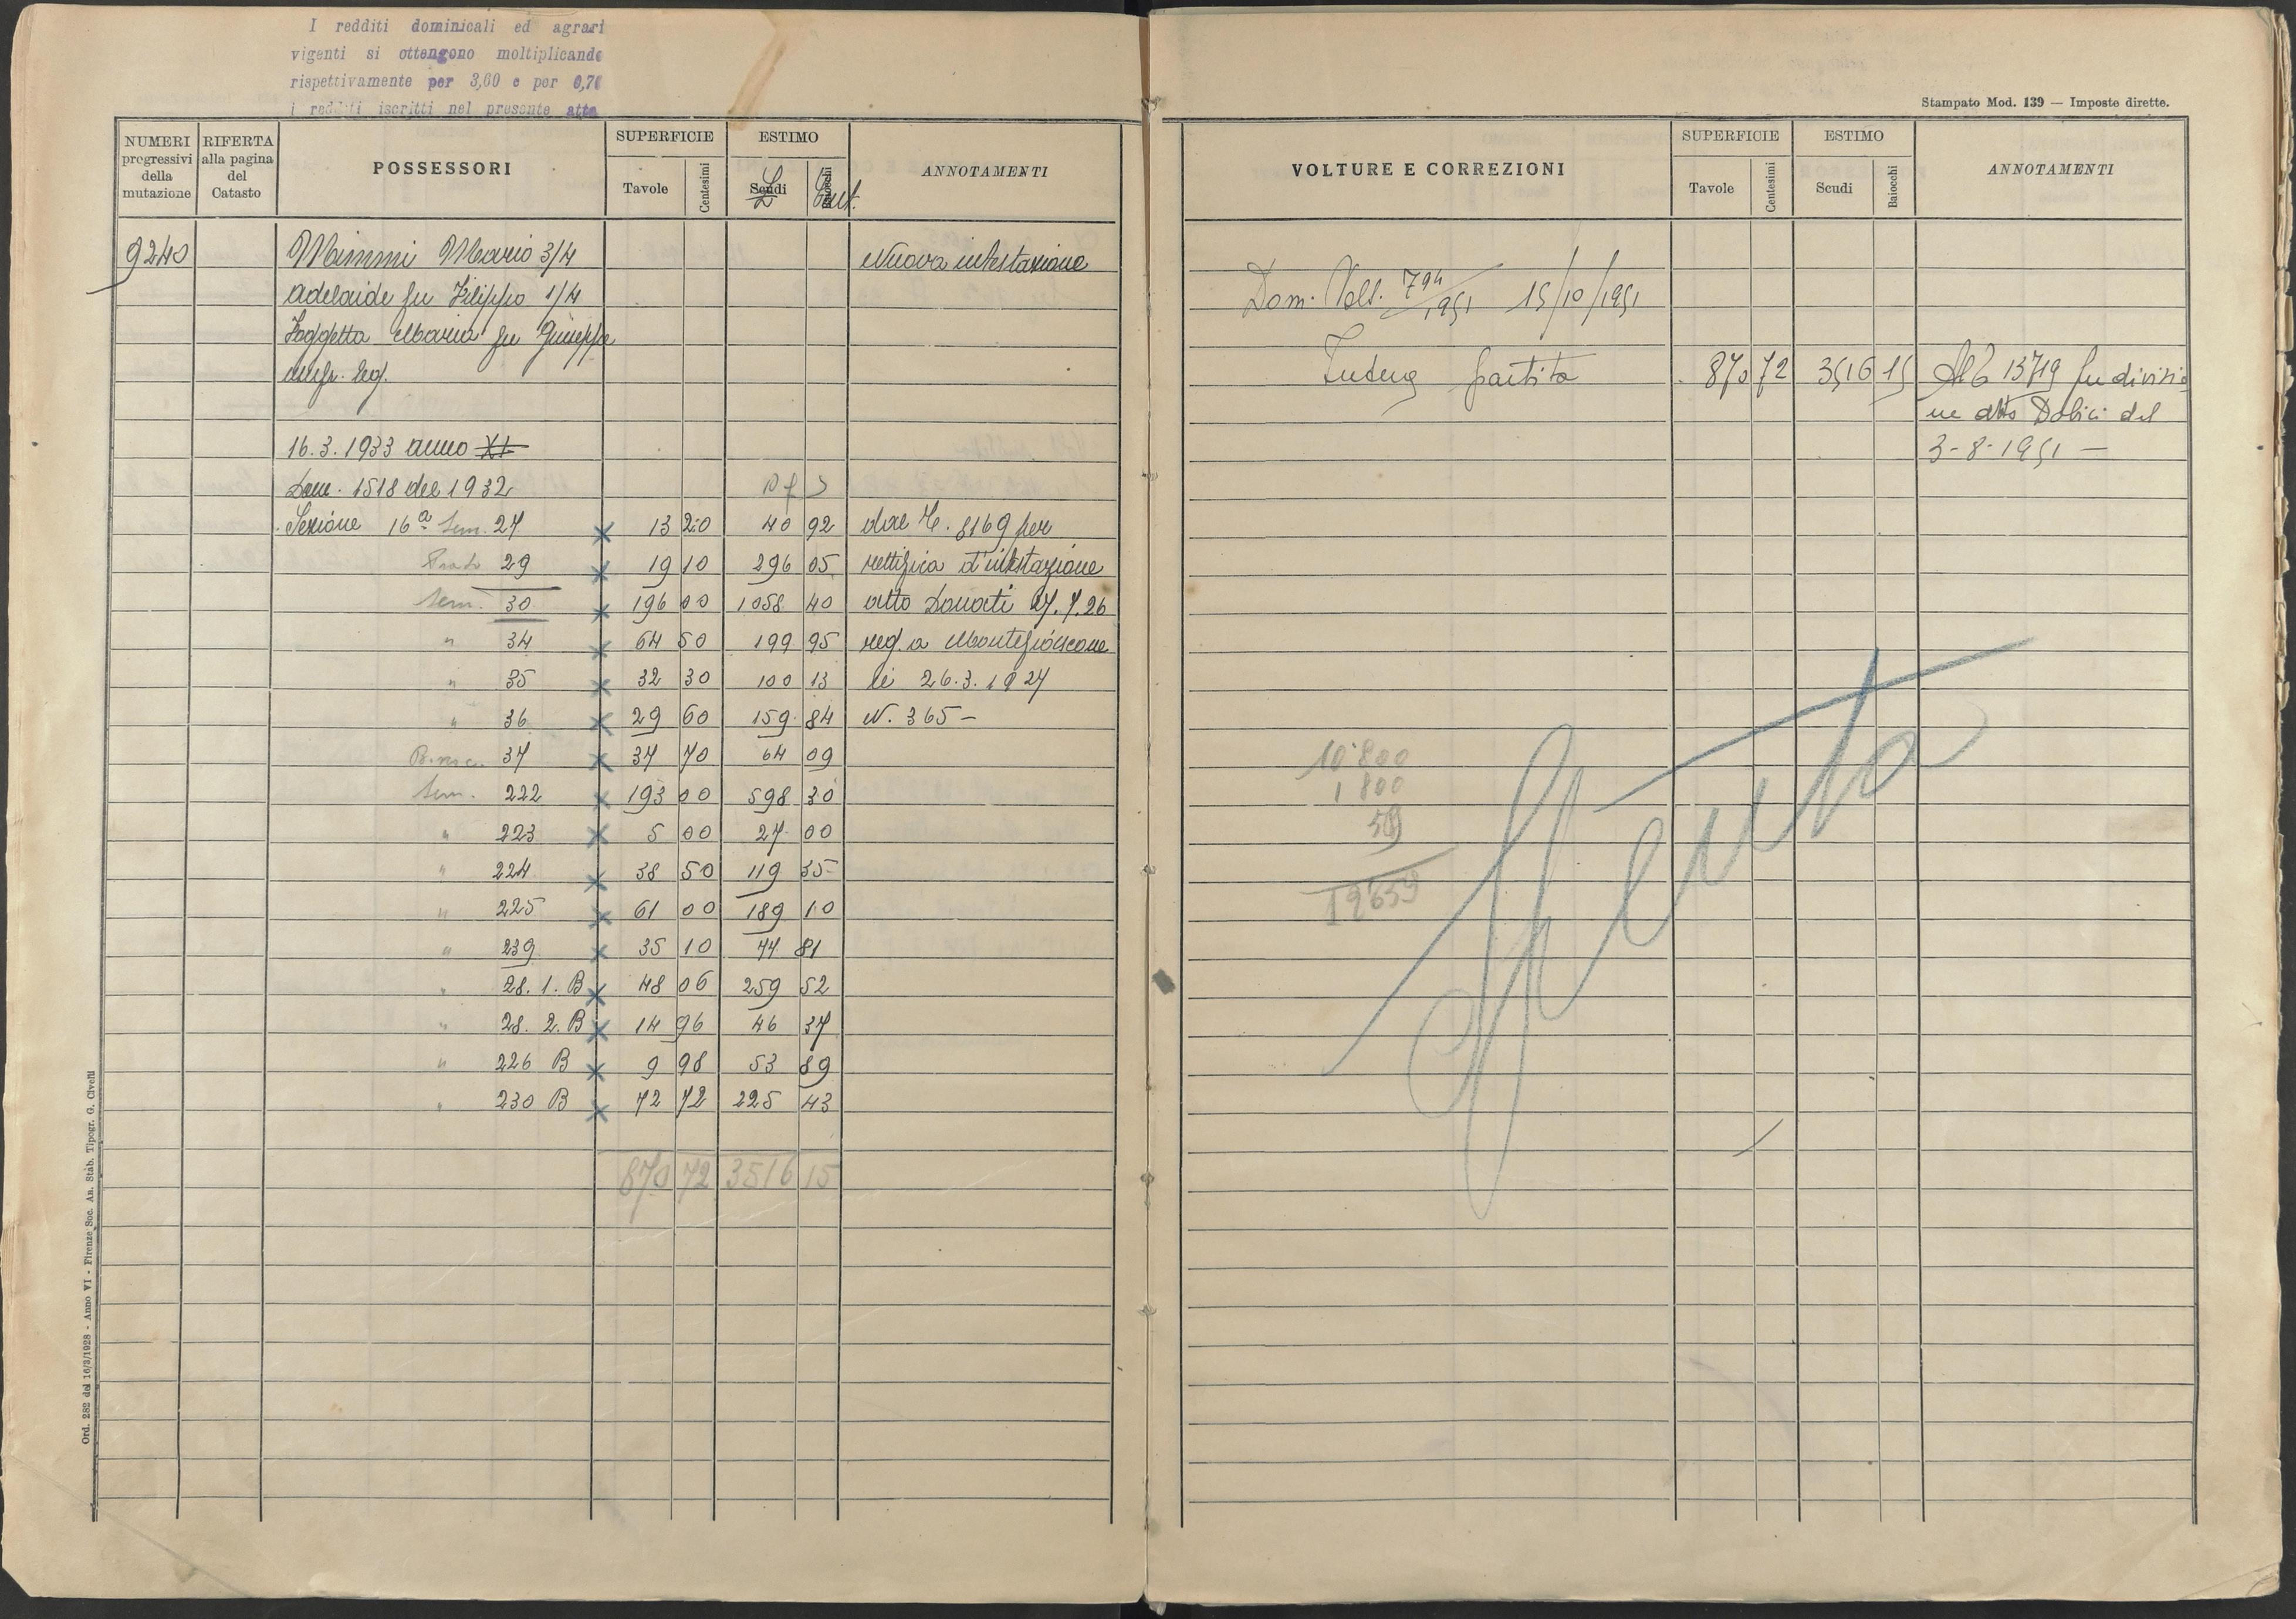 I redditi dominicali ed agrari
vigenti si ottengono moltiplicando
rispettivamente per 3,60 e per 0,70
i redditi iscritti nel presente atto
NUMERI progressivi della mutazione
RIFERTA alla pagina del Catasto
POSSESSORI
SUPERFICIE
Tavole Centesimi
ESTIMO
Scudi Baiocchi
£ Cent.
ANNOTAMENTI
9240 Mimmi Mario 3/4 Nuova intestazione
Adelaide fu Filippo 1/4
Foggetta Maria fu Giuseppe
usufr. leg.
16.3.1933 anno XI
Dom. 1518 del 1932
Sezione 16ª Sem. 27 13 20 40 92 dal C. 8169 per
Prato 29 19 10 296 05 rettifica d'intestazione
Sem. 30 196 00 1058 40 atto Donati 27.7.26
" 34 64 50 199 95 reg. a Montefiascone
" 35 32 30 100 13 li 26.3.1927
" 36 29 60 159 84 N. 365 -
37 37 70 64 09
Sem. 222 193 00 598 30
" 223 5 00 27 00
" 224 38 50 119 35
" 225 61 00 189 10
" 239 35 10 77 81
" 28.1.B 48 06 259 52
" 28.2.B 14 96 46 37
" 226 B 9 98 53 89
" 230 B 72 72 225 43
870 72 3516 15
Ord. 282 del 16/3/1928 - Anno VI - Firenze Soc. An. Stab. Tipogr. G. Civelli
Stampato Mod. 139 — Imposte dirette.
VOLTURE E CORREZIONI
SUPERFICIE
Tavole Centesimi
ESTIMO
Scudi Baiocchi
ANNOTAMENTI
Dom. Volt. 794/1951 15/10/1951
Intera partita 870 72 3516 15 Al C 13719 per divisio
ne atto del
3-8-1951 —
10.800
1 800
59
12659
Spenta